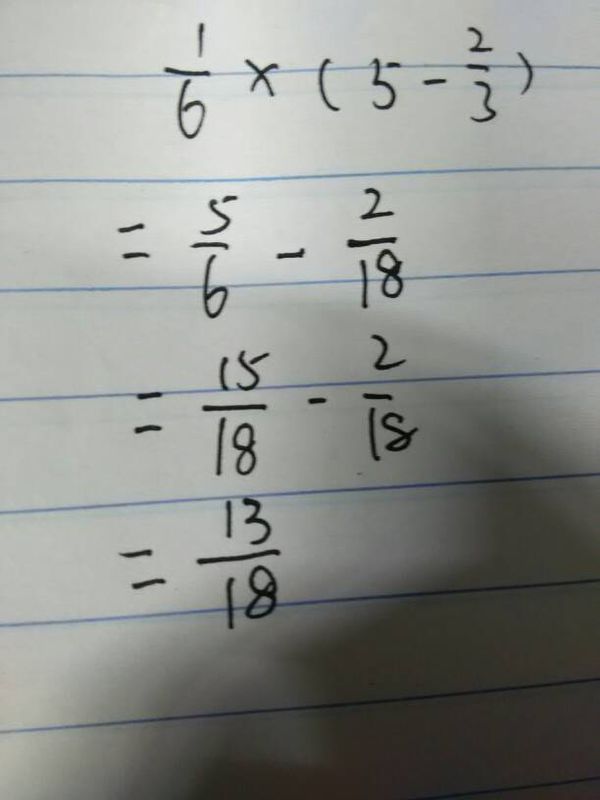 1/6 × (5 - 2/3)
= 5/6 - 2/18
= 15/18 - 2/18
= 13/18